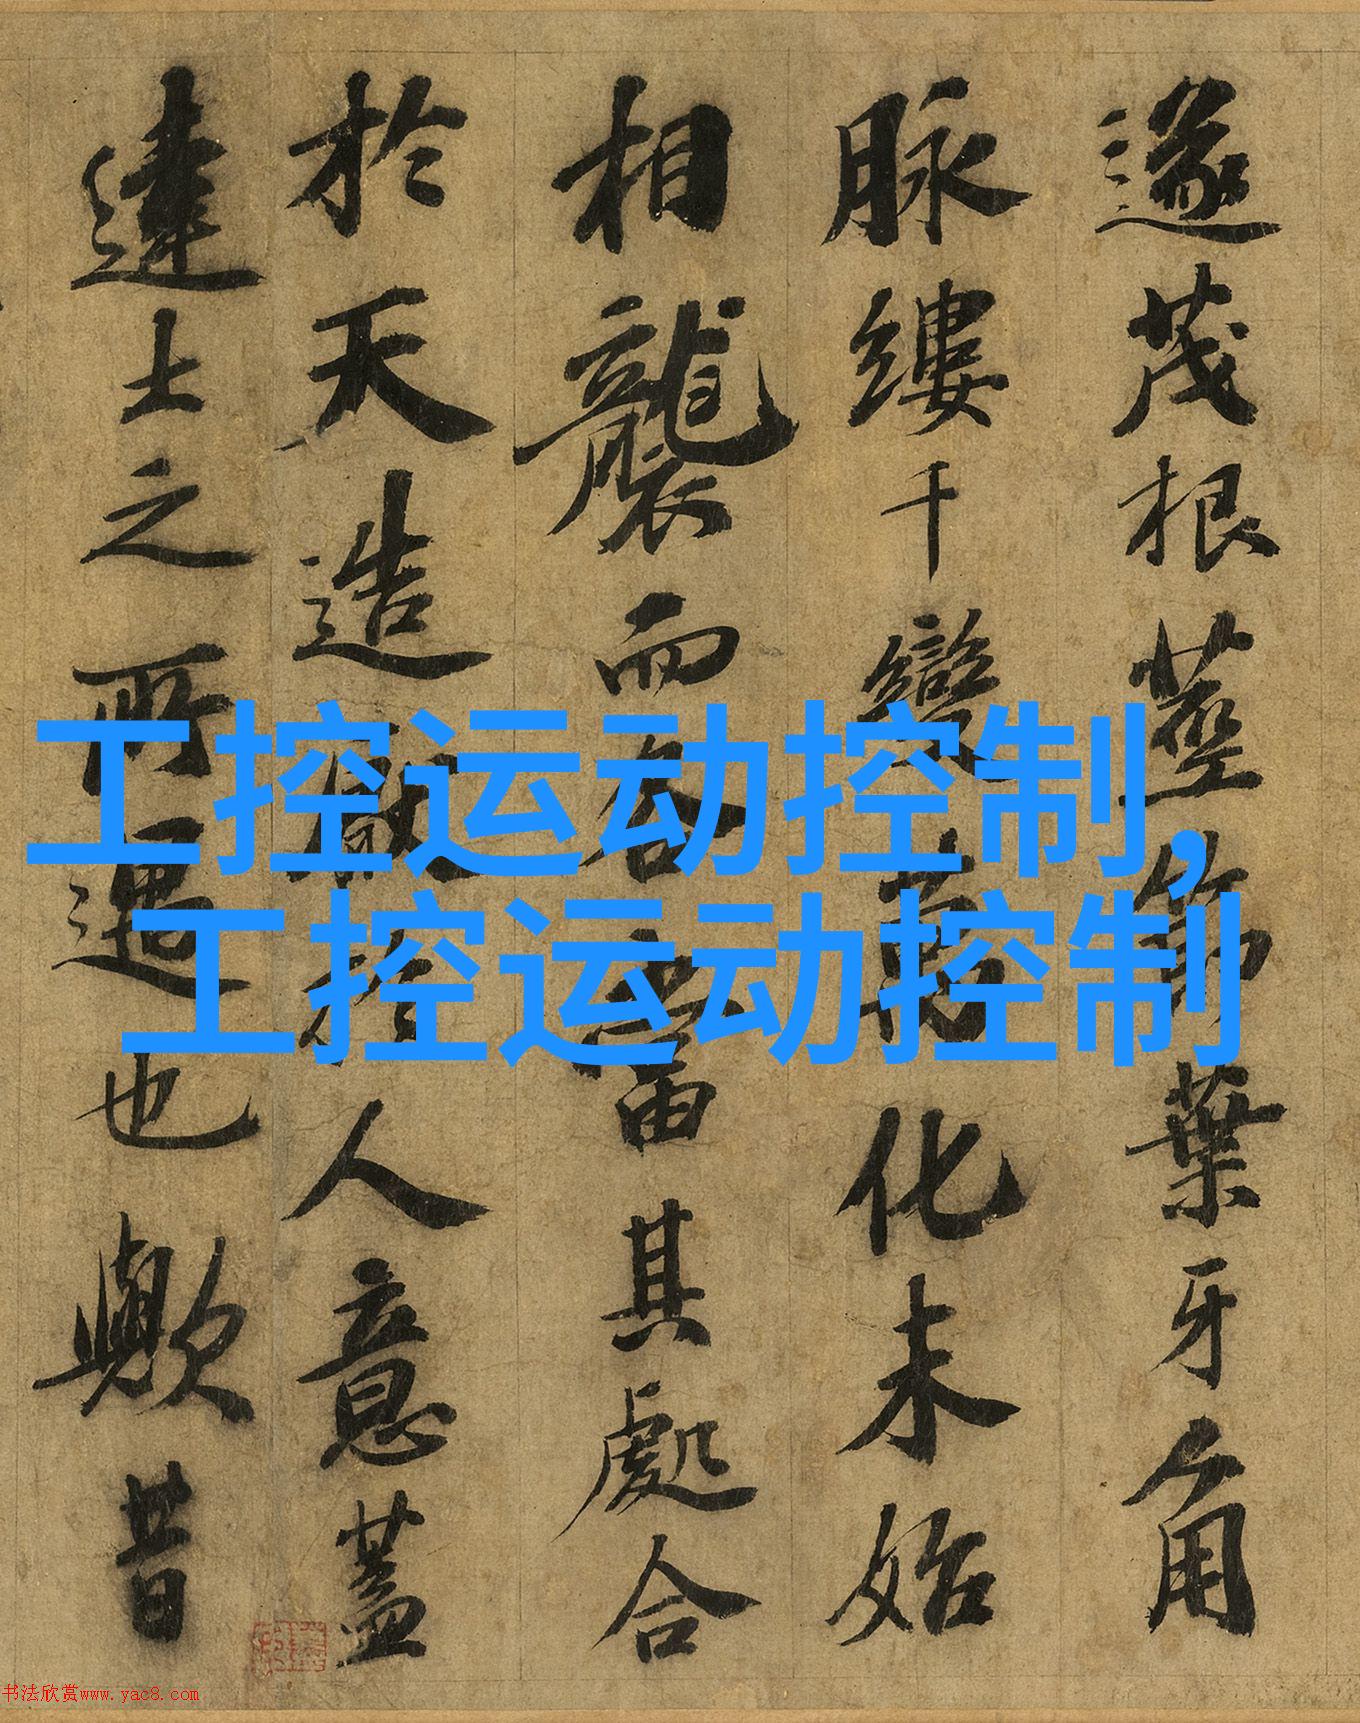 遂茂根莖節葉牙角
脉縷千變萬化未始
相襲而各當其處合
於天造厭於人意蓋
達士之所遇也歟昔
工控运动控制,
工控运动控制
书法欣赏www.yac8.com